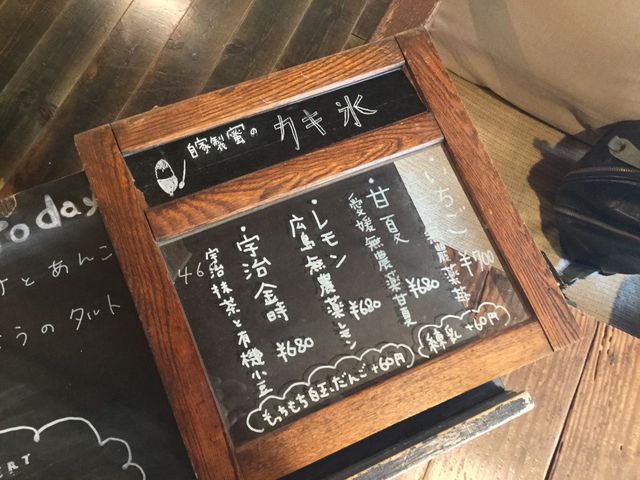 自家製蜜の カキ氷
・いちご
無農薬苺 ¥700
・甘夏
愛媛無農薬甘夏 ¥680
・レモン
広島無農薬レモン ¥680
・宇治金時
宇治抹茶と有機小豆 ¥680
もちもち白玉だんご +60円
練乳 +60円
Today
とあんこ
うのタルト
ERT